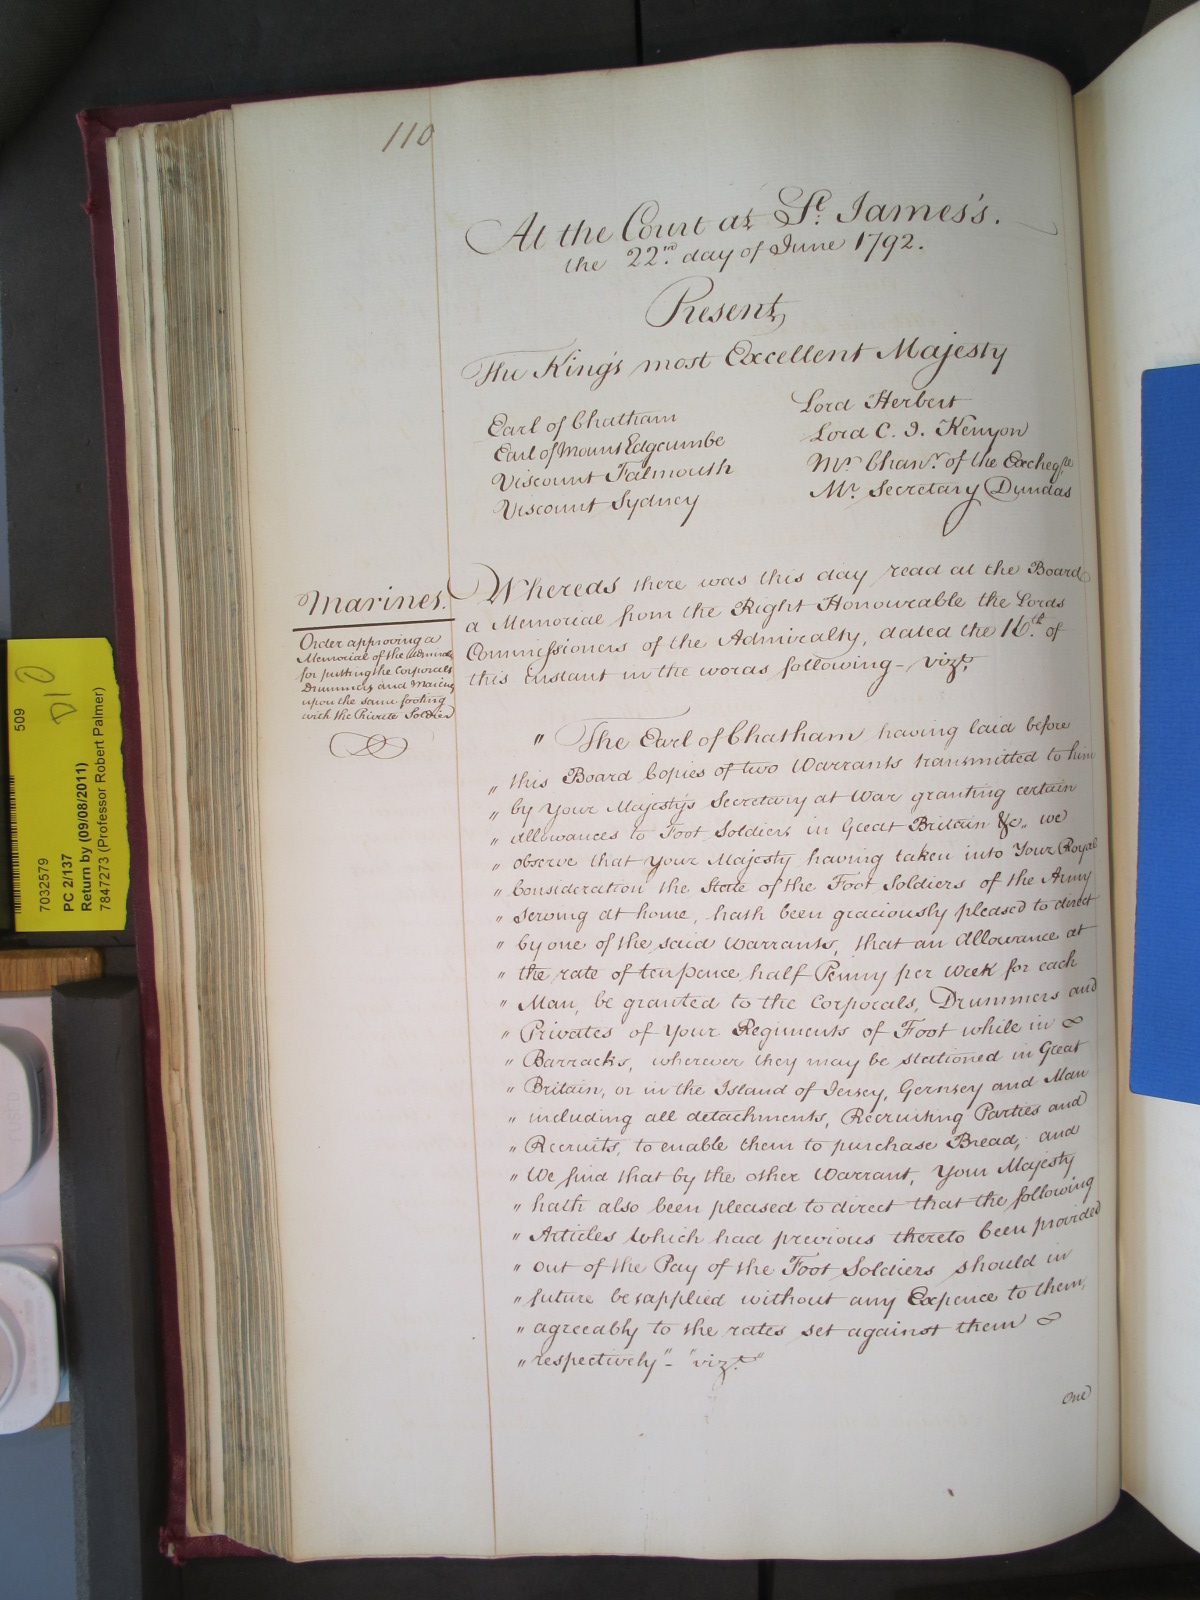 110
At the Court at St. James's.
the 22nd. day of June 1792.
Present,
The King's most Excellent Majesty
Earl of Chatham
Earl of Mount Edgcumbe
Viscount Falmouth
Viscount Sydney
Lord Herbert
Lord C. J. Kenyon
Mr. Chanr. of the Excheqr
Mr. Secretary Dundas
Marines.
Order approving a
Memorial of the Admiralty
for putting the Corporals
Drummers and Marines
upon the same footing
with the Private Soldier
Whereas there was this day read at the Board
a Memorial from the Right Honourable the Lords
Commissioners of the Admiralty, dated the 16th. of
this instant in the words following - vizt.
" The Earl of Chatham having laid before
" this Board Copies of two Warrants transmitted to him
" by Your Majesty's Secretary at War granting certain
" Allowances to Foot Soldiers in Great Britain &c. we
" observe that Your Majesty having taken into Your Royal
" Consideration the State of the Foot Soldiers of the Army
" serving at home, hath been graciously pleased to direct
" by one of the said Warrants, that an Allowance at
" the rate of tenpence half Penny per Week for each
" Man, be granted to the Corporals, Drummers and
" Privates of Your Regiments of Foot while in
" Barracks, wherever they may be stationed in Great
" Britain, or in the Island of Jersey, Gernsey and Man
" including all detachments, Recruiting Parties and
" Recruits, to enable them to purchase Bread, and
" We find that by the other Warrant, Your Majesty
" hath also been pleased to direct that the following
" Articles which had previous thereto been provided
" out of the Pay of the Foot Soldiers should in
" future be supplied without any Expence to them,
" agreeably to the rates set against them
" respectively" - "vizt."
one
509
D10
7032579
PC 2/137
Return by (09/08/2011)
7847273 (Professor Robert Palmer)